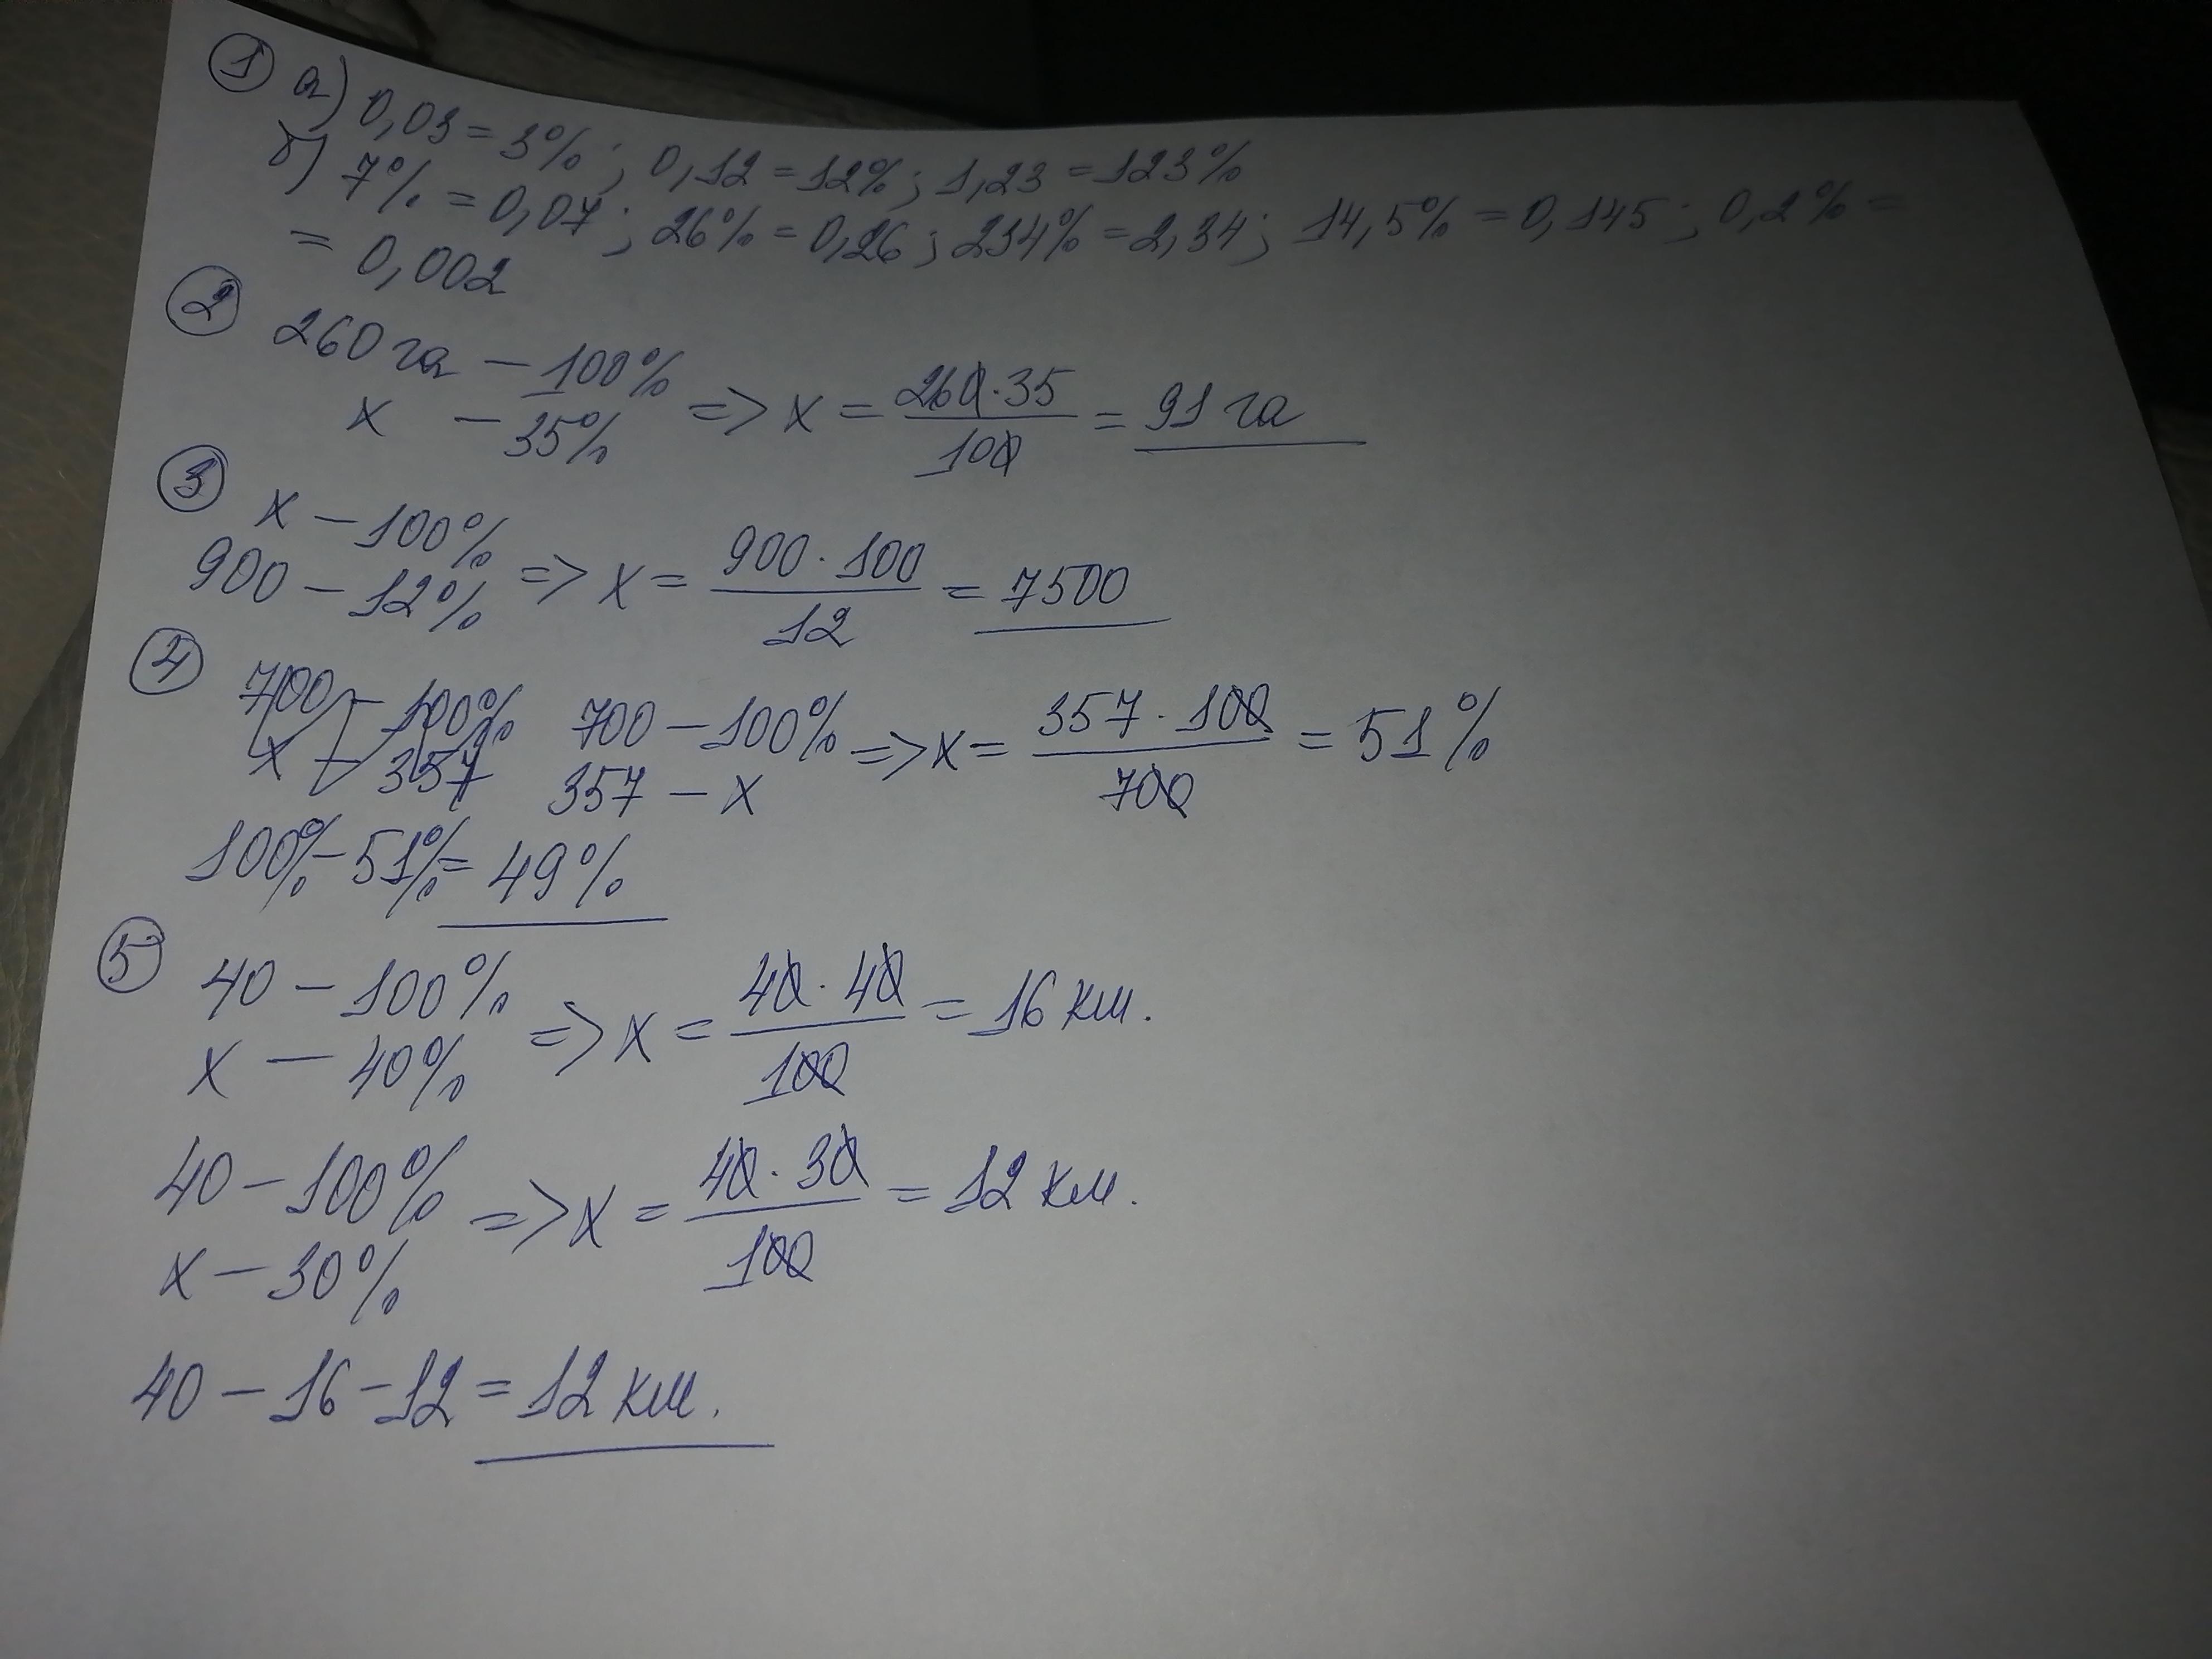 1 а) 0,03 = 3% ; 0,12 = 12% ; 1,23 = 123%
б) 7% = 0,07 ; 26% = 0,26 ; 234% = 2,34 ; 14,5% = 0,145 ; 0,2% =
= 0,002
2 260 га — 100%
x — 35% => x = 260·35/100 = 91 га
3 x — 100%
900 — 12% => x = 900·100/12 = 7500
4 700 — 100% 700 — 100% => x = 357·100/700 = 51%
x — 357 357 — x
100% - 51% = 49%
5 40 — 100%
x — 40% => x = 40·40/100 = 16 км.
40 — 100%
x — 30% => x = 40·30/100 = 12 км.
40 — 16 — 12 = 12 км.